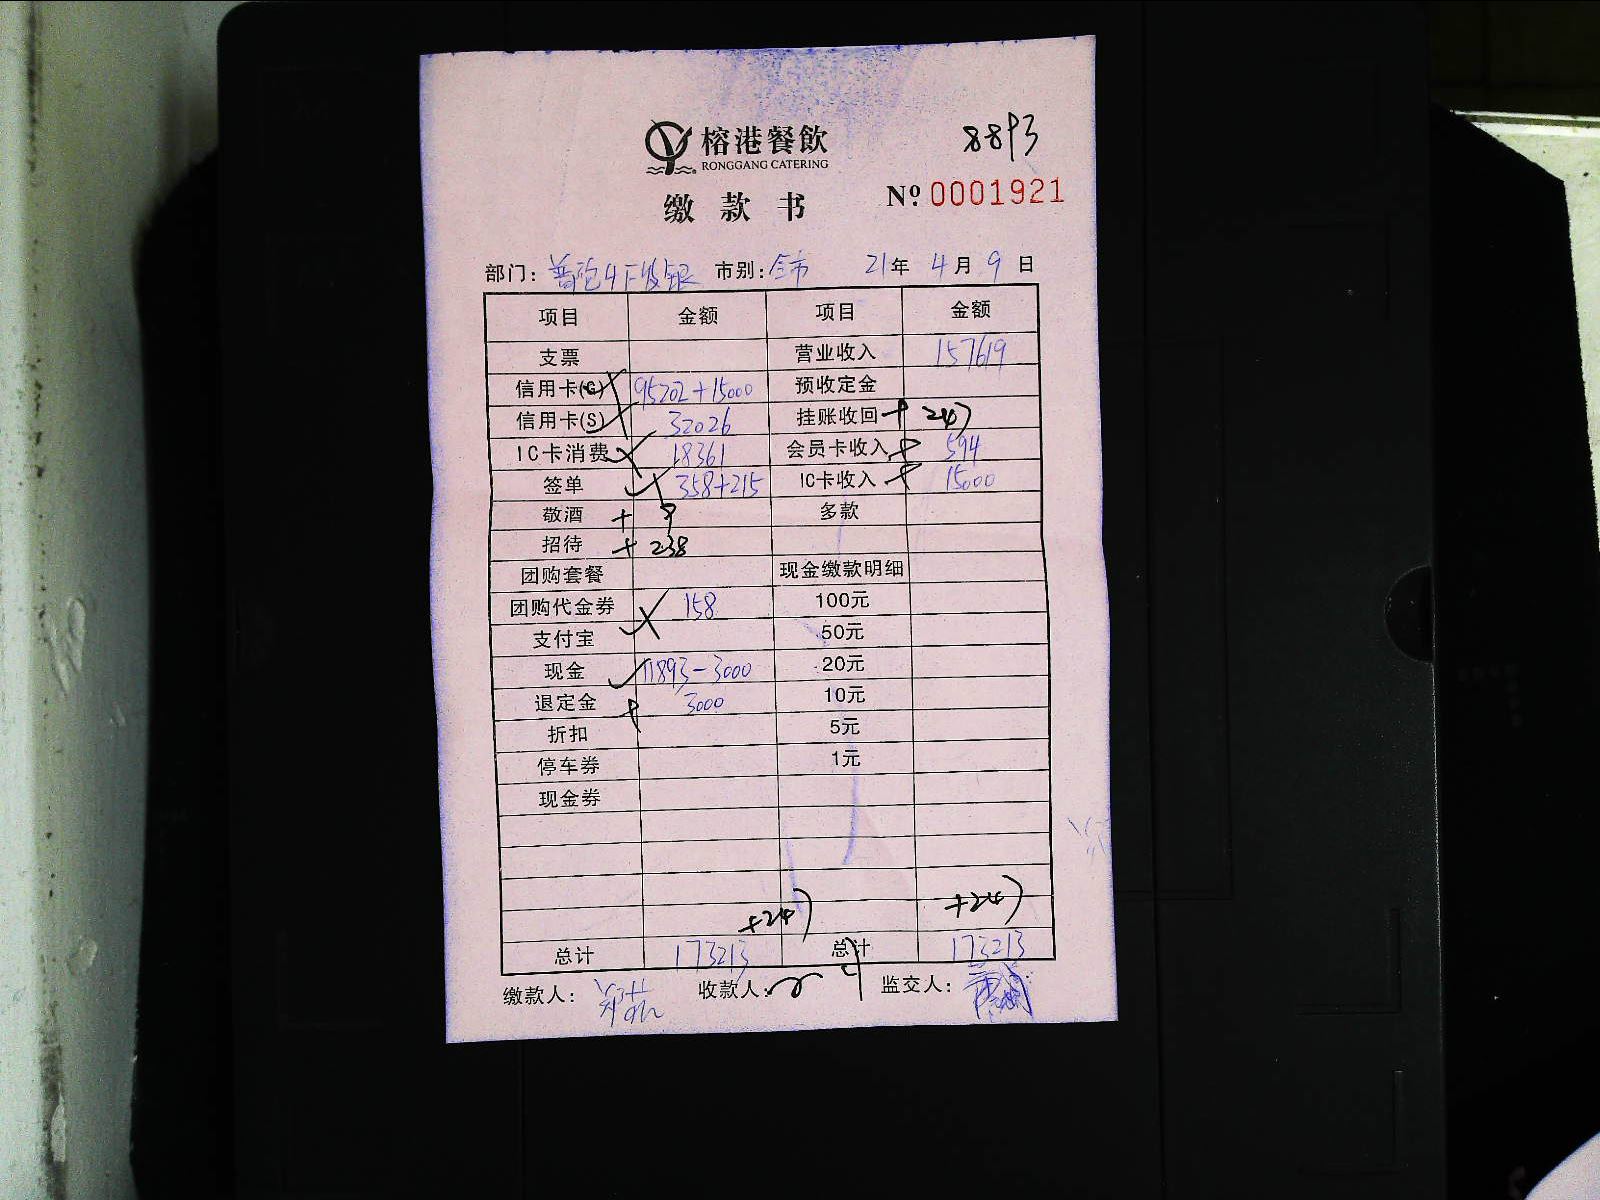 榕港餐飲 8893
RONGGANG CATERING
缴款书 Nº 0001921
部门: 市别:全市 21年 4月 9日
项目 金额 项目 金额
支票 营业收入 157619
信用卡(C) 95202+15000 预收定金
信用卡(S) 32026 挂账收回 + 247
IC卡消费 18361 会员卡收入 594
签单 358+215 IC卡收入 15000
敬酒 + 9 多款
招待 + 238
团购套餐 现金缴款明细
团购代金券 158 100元
支付宝 50元
现金 11893-3000 20元
退定金 3000 10元
折扣 5元
停车券 1元
现金券
+247 +247
总计 173213 总计 173213
缴款人: 收款人: 监交人: